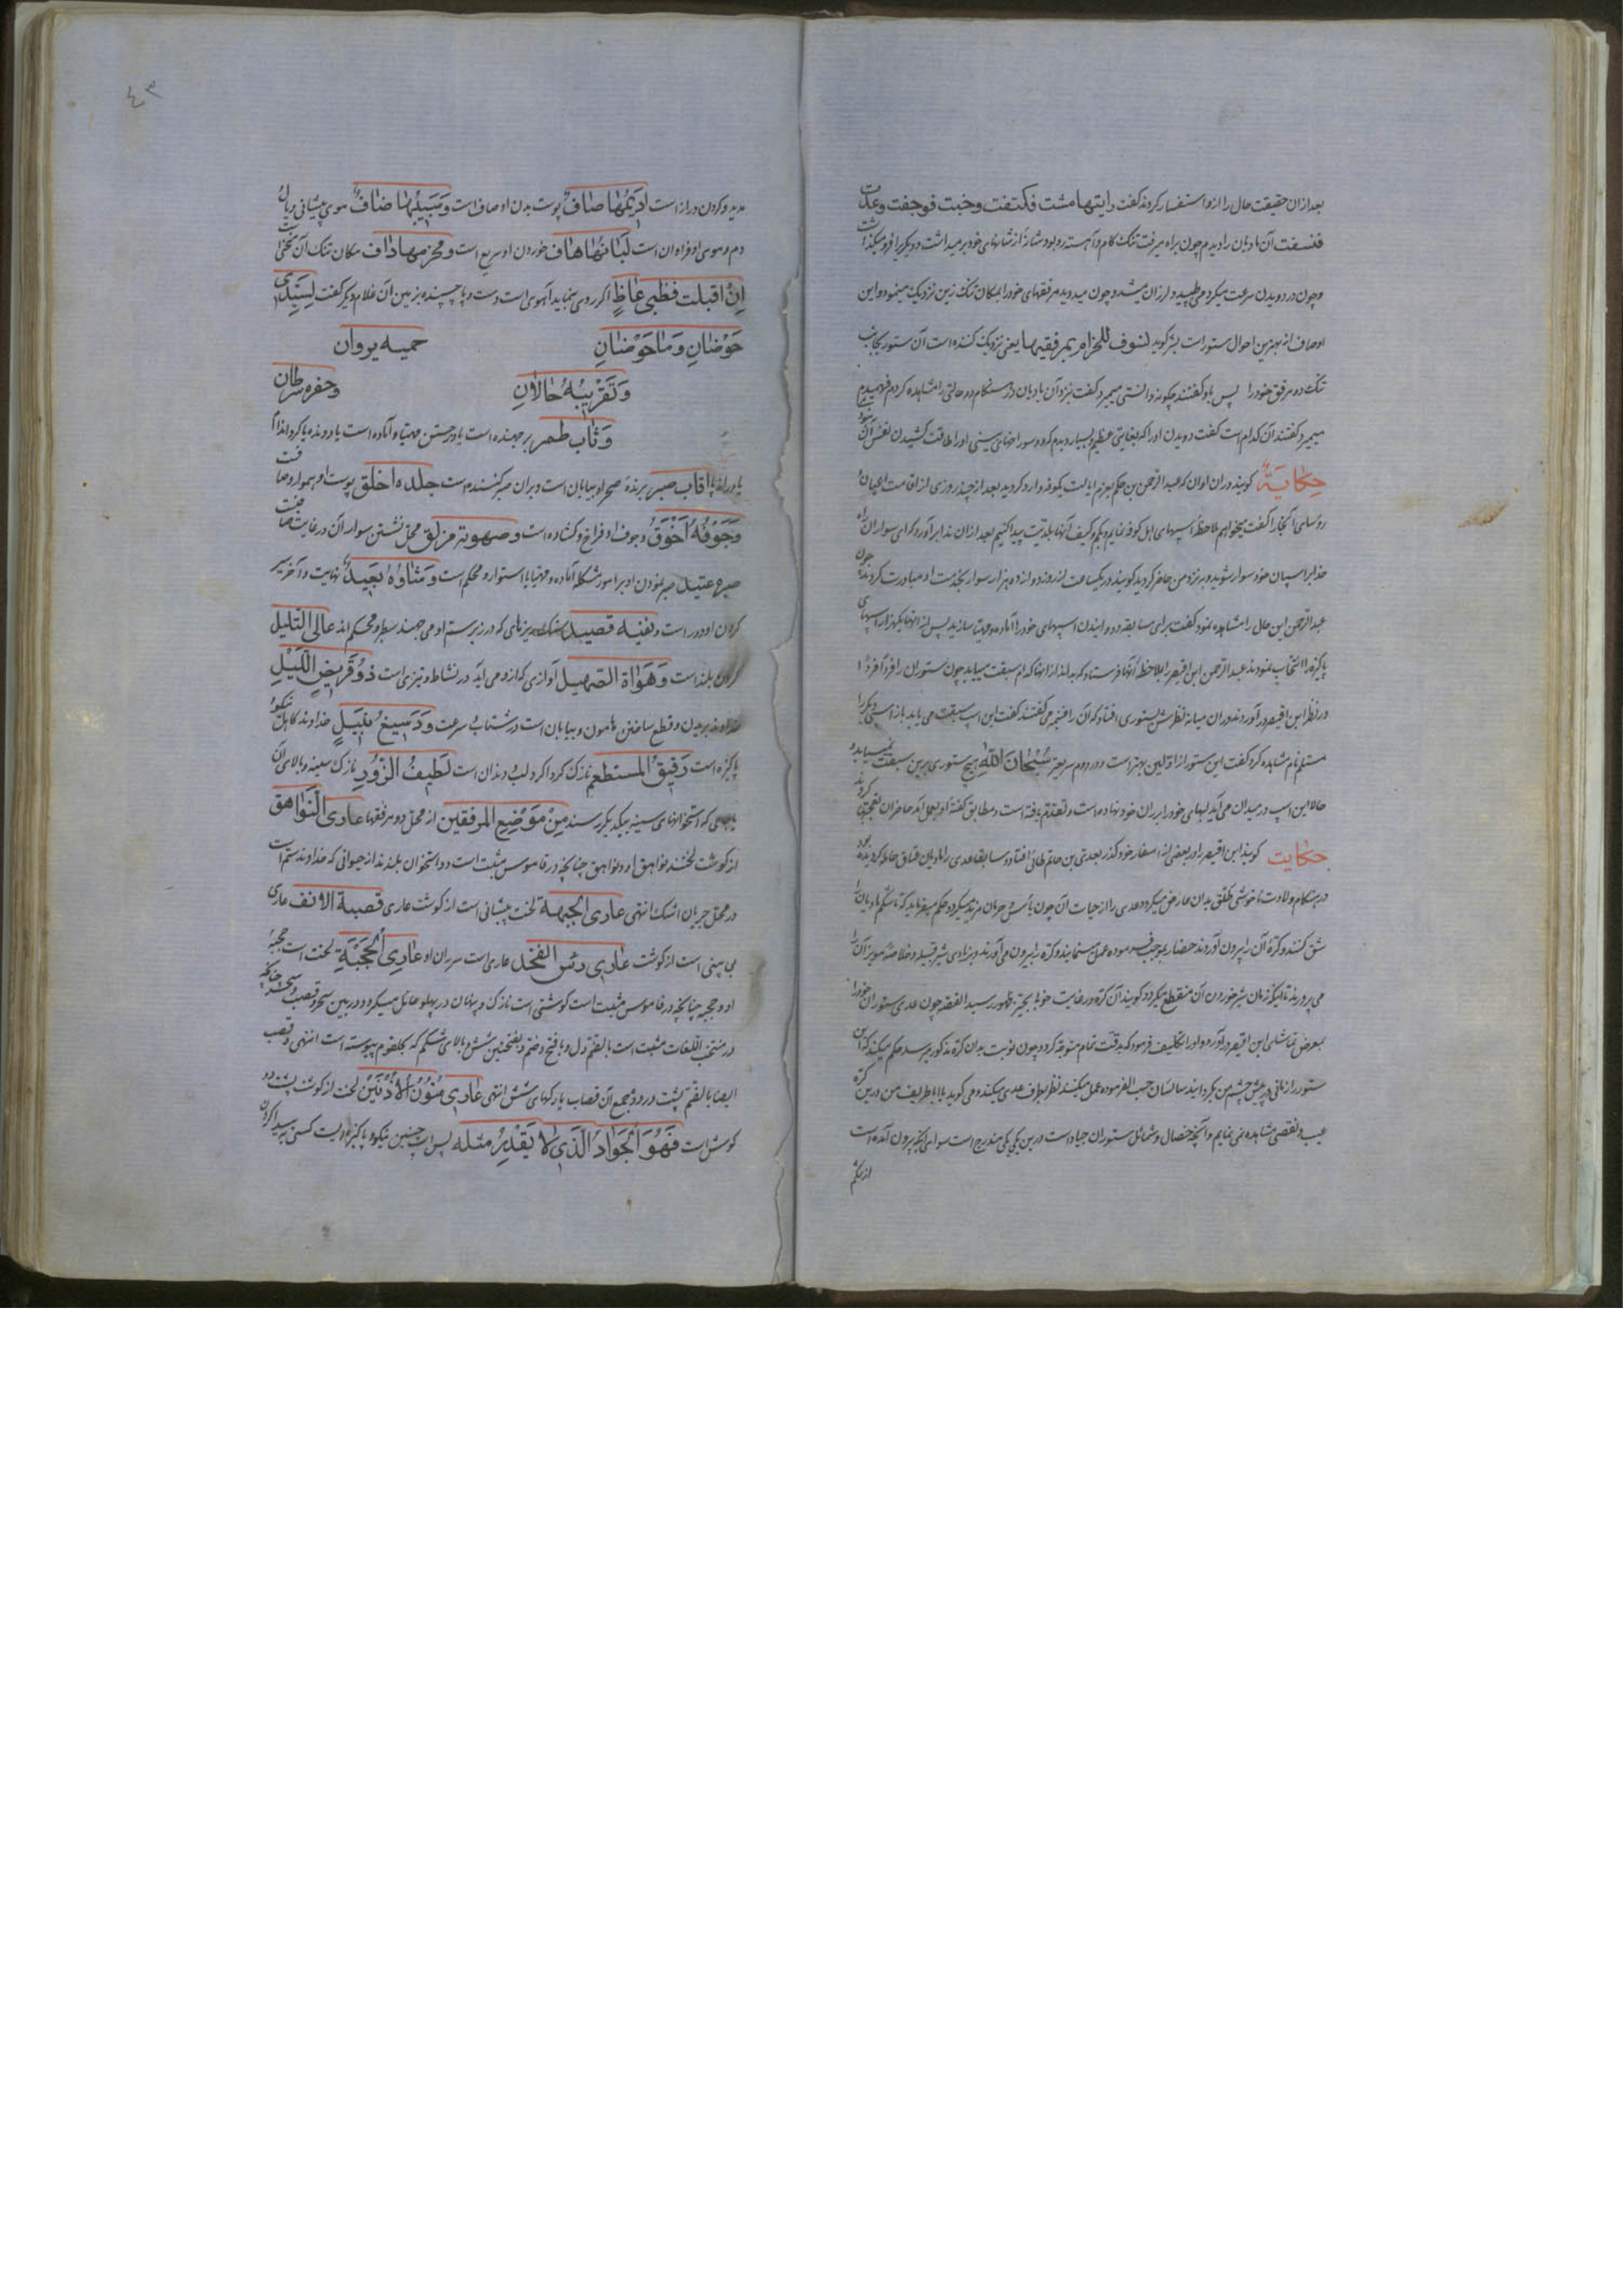 بعد از ان حقیقت حال را ازو استفسار کردند گفت رایتها مشت فکتفت وخبت فوجفت وعدت
فنسفت آن مادیان را دیدم چون براه میرفت تنک کام و آهسته رو بود شانهٔ از شانهای خود بر میداشت و دیگریرا فرو میگذاشت
و چون در دویدن سرعت میکرد می طپید و لرزان میشد و چون میدوید مرفقهای خود را بمکان تنک زین نزدیک مینمود و این
اوصاف از بهترین احوال ستور است بشر کوید لنسوف للحزام بمرفقیها یعنی نزدیک کننده است آن ستور بجانب
تنک دو مرفق خود را پس باو گفتند چکونه دانستی میمیرد گفت نزد آن مادیان در هنکام دو حالتی را مشاهده کردم فهمیدم
میمیرد گفتند آن کدام است گفت دویدن او را که بغایتی عظیم و بسیار دیدم که دو سوراخهای بینی او را طاقت کشیدن نفس آن نبود
حکایة کویند در ان اوان که عبد الرحمن بن حکم بعزم ایالت بکوفه وارد کردید بعد از چند روزی از اقامت اعیان و
رؤسای انجا را گفت میخواهم ملاحظهٔ اسپهای اهل کوفه نمایم و بکم و کیف آنها بلدیت پیدا کنیم بعد از ان ندا بر آورد که ای سواران راه
خدا بر اسپان خود سوار شوید و بر نزد من حاضر کردید کویند در یکساعت از روز دوازده هزار سوار بخدمت او مبادرت کردند چون
عبد الرحمن این حال را مشاهده نمود گفت برای مسابقه و دوانیدن اسپهای خود را آماده و مهیا سازید پس از انها یکهزار اسپهای
پاکیزه را انتخاب نمودند عبد الرحمن ابن اقیصر را بملاحظهٔ آنها فرستاد که بداند از انها کدام سبقت مییابد چون ستوران را فردًا فردًا
در نظر ابن اقیصر در آوردند در ان میانه نظرش بستوری افتاد که آن را فنجمه می گفتند گفت این اسپ سبقت می یابد باز اسپی دیگر را
مستلم نام مشاهده کرد گفت این ستور از اولین بهتر است و در دوم سریعتر سُبْحَانَ اللّهِ هیچ ستوری بر این سبقت نمییابد و
حالا این اسپ در میدان می آید لبهای خود را بر ران خود نهاده است و تقدم یافته است و مطابق گفتهٔ او بعمل آمد حاضران تعجب کردند
حکایت کویند ابن اقیصر را در بعضی از اسفار خود گذر بعدی بن حاتم طائی افتاد و سابقا عدی را مادیان عتاق حامله کردیده بود
در هنکام ولادت ناخوشی طلق بدان عارض میکردد عدی را از حیات آن چون یأس و حرمان مزید میکردد حکم میفرماید که تا شکم مادیان را
شق کنند و کرهٔ آن را بیرون آورند حضار بموجب فرموده عمل مینمایند و کره را بیرون می آورند و بزادی شیر قبیله و خلاصهٔ مویز آن را
می پرورند تا اینکه زمان شیر خوردن آن منقطع میکردد کویند آن کره در غایت خوبی بحیز ظهور رسید القصه چون عدی ستوران خود را
بمعرض تماشای ابن اقیصر در آورد و او را تکلیف فرمود که بدقت تمام متوجه کردد چون نوبت بدان کره مذکور میرسد حکم میکند که این
ستور را زمانی در پیش چشم من بگردانید سائسان حسب الفرموده عمل میکنند نظر بطرف عدی میکند و می کوید یا ابا طریف من درین کره
عیب و نقصی مشاهده نمی نمایم و آنچه خصال و شمائل ستوران جیاد است درین یکی یکی مندرج است سوای اینکه بیرون آمده است
از شکم
٤٣
مدید و کردن دراز است اَدِیمُها صٰافٌ پوست بدن او صاف است وَسَبِیبُهٰا ضٰافٌ موی پیشانی و یال
دم و موی او فراوان است لَبٰانُهٰا هٰاف خوردن او سریع است ومحزمها داف مکان تنک آن سخت
اِنْ اقبلت فظبی عٰاطٍ اگر روی بنماید آهوی است دست و پا چسپنده بزمین آن غلام دیگر گفت لِسَیِّدِی
حَوْضٰانِ وَمٰا حَوْضٰانِ حمیه یروان
وَتَقْرِیبُهُ حٰالاٰنِ وحضره سرطان
وَثٰاب طمر بر جهنده است یا در جستن مهیا و آماده است یا دونده یا کرد اندام
یا دراز پا قٰاب صبر برندهٔ صحرا و بیابان است و بران صبر کننده است جلده اخلق پوست او هموار و صاف است
وَجَوْفُهُ اَخْوَقُ و جوف او فراخ و کشاده است وصهوته مزلق محل نشستن سوار آن در غایت صافیت
صبره عتید صبر نمودن او بر امور مشکله آماده و مهیا یا استوار و محکم است وَمَثٰاوُهُ بَعِیدٌ نهایت و آخر سیر
کردن او دور است ونفیه قصید سنک ریزهای که در زیر ستم او می جهند سطبر و محکم اند عالی التلیل
کردن بلند است وَهَوٰاة الصّهیل آوازی که ازو می آید در نشاط و تیزی است ذُو قَرِیضِ اللَّیْلِ
خداوند بریدن و قطع ساختن هامون و بیابان است در شتاب و سرعت وَدَسِیعٌ بنَبِیَلٍ خداوند کاهل نیکو و
پاکیزه است رَقیقُ المستطعم نازک کردا کرد لب و دندان است لَطِیفُ الزَّوْرِ نازک سینه و بالای آن
یا جای که استخوانهای سینه بیکدیگر رسند مِنْ مَوْضِعِ المرفقین از محل دو مرفقها عارِی النَّوٰاهق
از کوشت لختند نواهق او و نواهق چنانچه در قاموس مثبت است دو استخوان بلندند از حیوانی که خداوند ستم است
در محل جریان اشک انتهی عٰارِی الجَبهَة لخت پیشانی است از کوشت عاری قصبة الانف عاری
نی بینی است از کوشت عٰارِی رئس الفَخْد عاری است سر ران او عٰارِی الحَجَبَةِ لخت است حجبهٔ
او و حجبه چنانچه در قاموس مثبت است کوشتی است نازک و پنهان در پهلو حائل میکردد در بین سحر و قصب و سحر چنانکه
در منتخب اللغات مثبت است بالضم دل و بالفتح و ضم و بفتحتین شش و بالای شکم که بحلقوم پیوسته است انتهی و قصب
ایضا بالضم پشت و روده جمع آن قصاب یا رکهای شش انتهی عٰارِی مُتُوْنُ الْاُذْنَیْنَ لخت از کوشت پشت دو
کوش است فَهُوَ الْجَوٰادُ الَّذِی لاٰ یَقْدِرُ مثله پس اسپ چنین نیکو و پاکیزه ایست کسی بر پیدا کردن